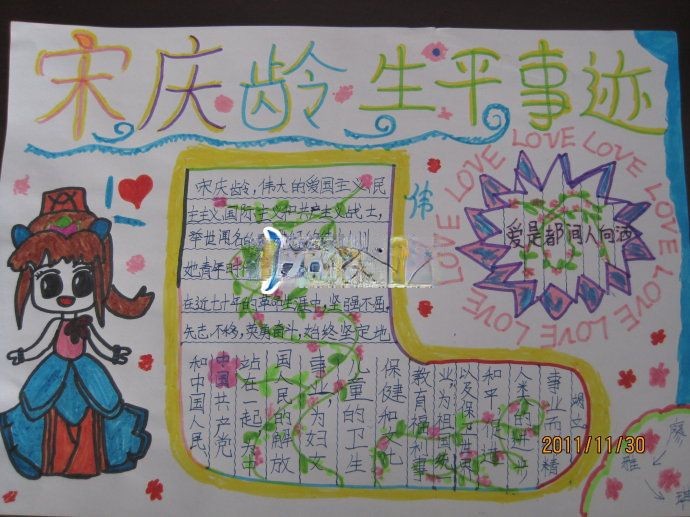 宋庆龄生平事迹
I
LOVE LOVE LOVE LOVE LOVE LOVE LOVE LOVE
宋庆龄,伟大的爱国主义、民
主主义、国际主义和共产主义战士,
举世闻名的
她青年时
在近七十年的革命生涯中,坚强不屈,
矢志不移,英勇奋斗,始终坚定地
和中国人民
中国共产党
站在一起,为中
国人民的解放
事业,为妇女
儿童的卫生
保健和文化
教育福利事
业,为祖国统一
以及保卫世界
和平、促进
人类的进步
事业而
精
伟
2011/11/30